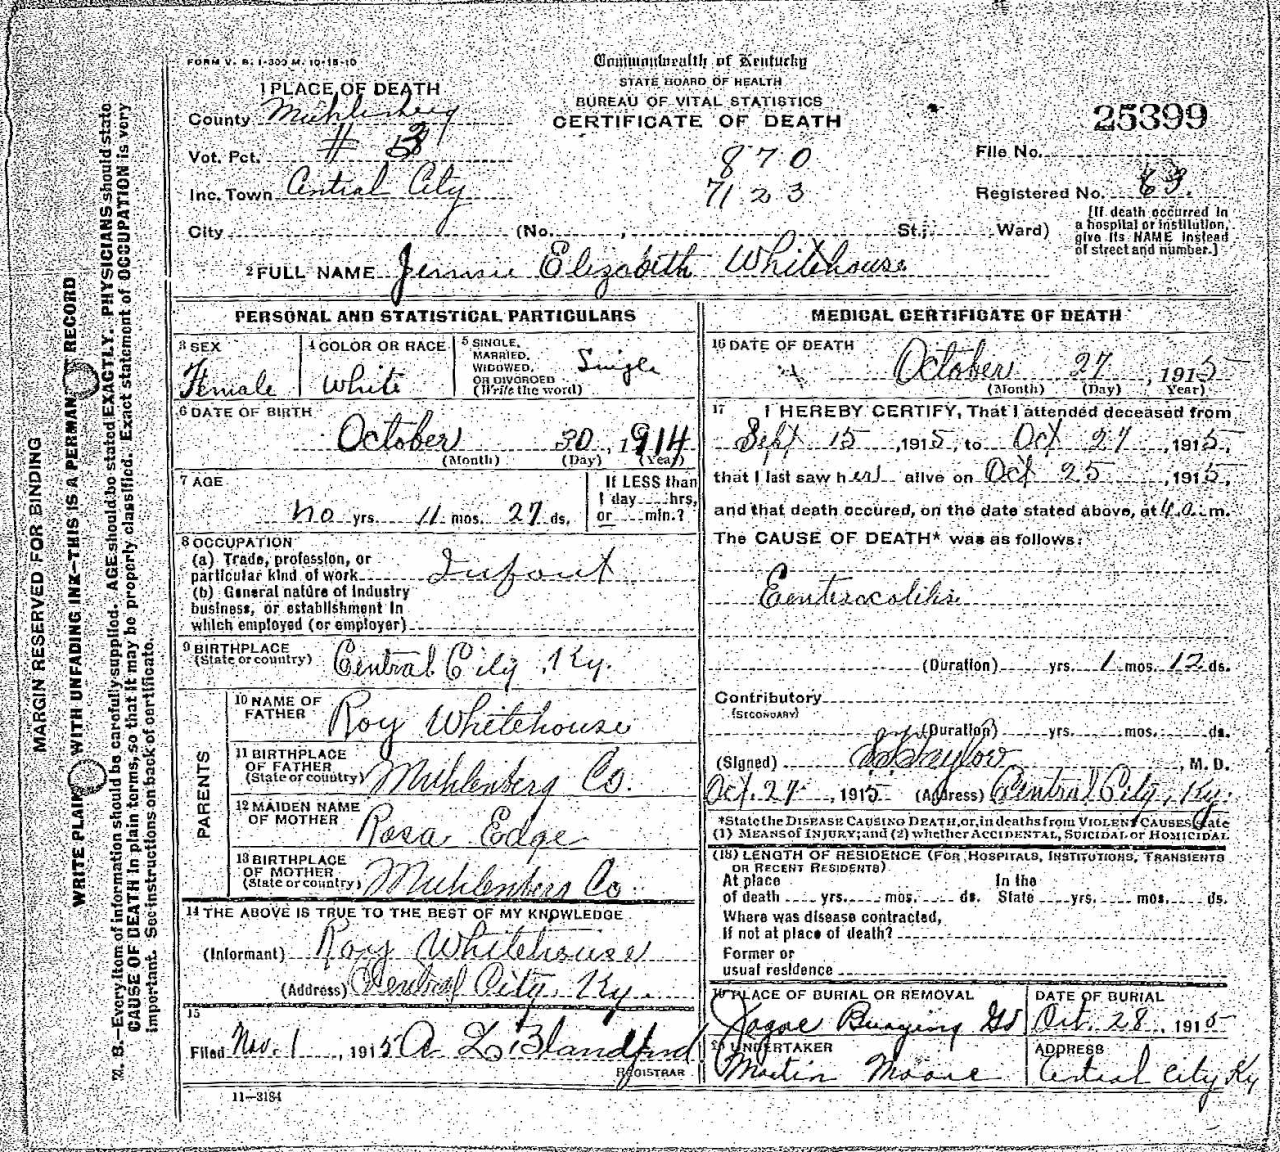 FORM V. S. 1-300 M. 10-18-10
Commonwealth of Kentucky
STATE BOARD OF HEALTH
BUREAU OF VITAL STATISTICS
CERTIFICATE OF DEATH
1 PLACE OF DEATH
County Muhlenberg
Vot. Pct. # 3
Inc. Town Central City
City (No. , St.; Ward)
870
7123
25399
File No.
Registered No. 83.
[If death occurred in
a hospital or institution,
give its NAME instead
of street and number.]
2 FULL NAME Jennie Elizabeth Whitehouse
PERSONAL AND STATISTICAL PARTICULARS
3 SEX
Female
4 COLOR OR RACE
White
5 SINGLE,
MARRIED,
WIDOWED,
OR DIVORCED
(Write the word)
Single
6 DATE OF BIRTH
October 30, 1914
(Month) (Day) (Year)
7 AGE
no yrs. 11 mos. 27 ds.
If LESS than
1 day hrs,
or min.?
8 OCCUPATION
(a) Trade, profession, or
particular kind of work Infant
(b) General nature of Industry
business, or establishment in
which employed (or employer)
9 BIRTHPLACE
(State or country) Central City, Ky.
PARENTS
10 NAME OF
FATHER Roy Whitehouse
11 BIRTHPLACE
OF FATHER
(State or country) Muhlenberg Co.
12 MAIDEN NAME
OF MOTHER Rosa Edge
13 BIRTHPLACE
OF MOTHER
(State or country) Muhlenberg Co.
14 THE ABOVE IS TRUE TO THE BEST OF MY KNOWLEDGE
(Informant) Roy Whitehouse
(Address) Central City, Ky.
15
Filed Nov. 1, 1915 A. L. Blandford
REGISTRAR
11-3184
MEDICAL CERTIFICATE OF DEATH
16 DATE OF DEATH
October 27, 1915
(Month) (Day) (Year)
17 I HEREBY CERTIFY, That I attended deceased from
Sept 15, 1915, to Oct 27, 1915,
that I last saw her alive on Oct 25, 1915,
and that death occured, on the date stated above, at 4 a. m.
The CAUSE OF DEATH* was as follows:
Eenterocolitis
(Duration) yrs. 1 mos. 12 ds.
Contributory
(SECONDARY)
(Duration) yrs. mos. ds.
(Signed) , M. D.
Oct. 27, 1915 (Address) Central City, Ky.
*State the DISEASE CAUSING DEATH, or, in deaths from VIOLENT CAUSES state
(1) MEANS of INJURY; and (2) whether ACCIDENTAL, SUICIDAL or HOMICIDAL
(18) LENGTH OF RESIDENCE (FOR HOSPITALS, INSTITUTIONS, TRANSIENTS
OR RECENT RESIDENTS)
At place In the
of death yrs. mos. ds. State yrs. mos. ds.
Where was disease contracted,
If not at place of death?
Former or
usual residence
19 PLACE OF BURIAL OR REMOVAL
Burying Gd
DATE OF BURIAL
Oct. 28, 1915
20 UNDERTAKER
Martin Moore
ADDRESS
Central City Ky
MARGIN RESERVED FOR BINDING
WRITE PLAIN WITH UNFADING INK—THIS IS A PERMAN T RECORD
N. B.—Every Item of information should be carefully supplied. AGE should be stated EXACTLY. PHYSICIANS should state
CAUSE OF DEATH in plain terms, so that it may be properly classified. Exact statement of OCCUPATION is very
important. See instructions on back of certificate.